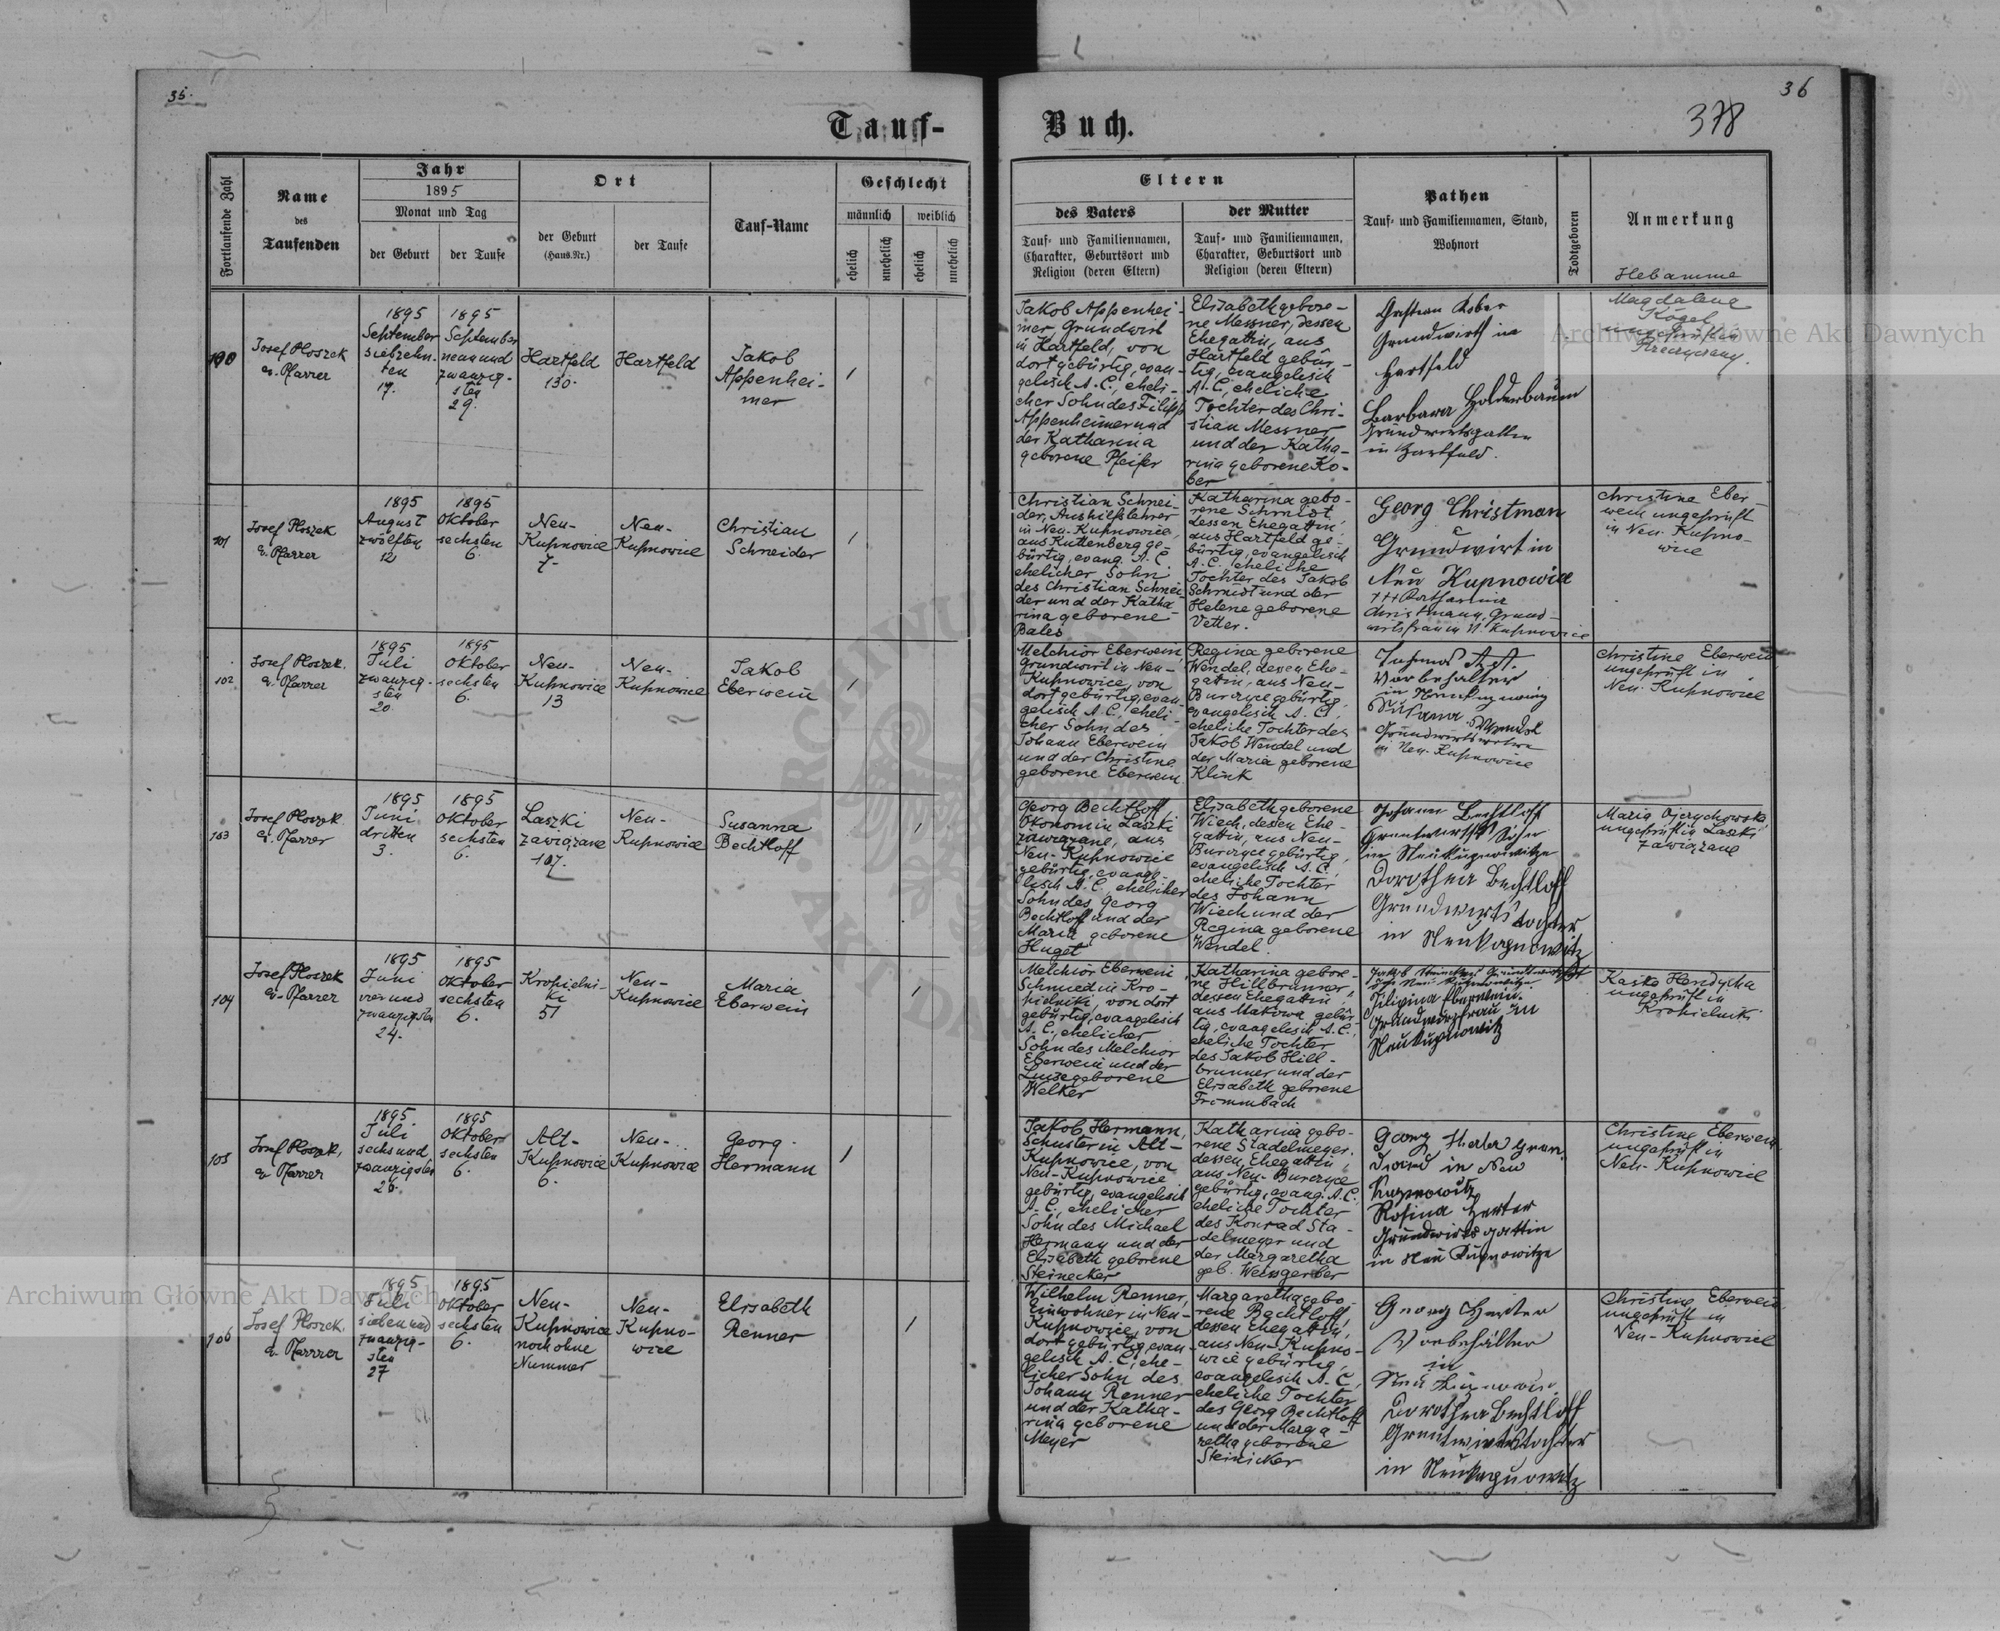 35.
36
378
Tauf-
Buch.
Fortlaufende Zahl
Name
des
Taufenden
Jahr
1895
Monat und Tag
der Geburt
der Taufe
Ort
der Geburt
(Haus.Nr.)
der Taufe
Tauf-Name
Geschlecht
männlich
weiblich
ehelich
unehelich
ehelich
unehelich
Eltern
des Vaters
Tauf- und Familiennamen,
Charakter, Geburtsort und
Religion (deren Eltern)
der Mutter
Tauf- und Familiennamen,
Charakter, Geburtsort und
Religion (deren Eltern)
Pathen
Tauf- und Familiennamen, Stand,
Wohnort
Todtgeboren
Anmerkung
Hebamme
100
Josef Ploszek
ev. Pfarrer
1895
September
siebzehn-
ten
17.
1895
September
neunund
zwanzig-
sten
29.
Hartfeld
130.
Hartfeld
Jakob
Appenhei-
mer
1
Jakob Appenhei-
mer, Grundwirt
in Hartfeld, von
dort gebürtig, evan-
gelisch A.C., eheli-
cher Sohn des Filipp
Appenheimer und
der Katharina
geborene Pfeifer
Elisabeth gebore-
ne Messner, dessen
Ehegattin, aus
Hartfeld gebür-
tig, evangelisch
A.C., eheliche
Tochter des Chri-
stian Messner
und der Katha-
rina geborene Ko-
ber
Christian Kober
Grundwirth in
Hartfeld
Barbara Holderbaum
Grundwirtsgattin
in Hartfeld.
Magdalena
Kogel
ungeprüft in
101
Josef Ploszek
ev. Pfarrer
1895
August
zwölften
12
1895
Oktober
sechsten
6.
Neu-
Kupnowice
7.
Neu-
Kupnowice
Christian
Schneider
1
Christian Schnei-
der, Aushilfslehrer
in Neu-Kupnowice,
aus Kuttenberg ge-
bürtig, evang. A.C.
ehelicher Sohn
des Christian Schnei-
der und der Katha-
rina geborene
Bales
Katharina gebo-
rene Schmidt,
dessen Ehegattin,
aus Hartfeld ge-
bürtig, evangelisch
A.C. eheliche
Tochter des Jakob
Schmidt und der
Helene geborene
Vetter.
Georg Christman
Grundwirt in
Neu Kupnowice
+++ Katharina
Christmann, Grund-
wirtsfrau in N. Kupnowice
Christine Eber-
wein ungeprüft
in Neu-Kupno-
wice
102
Josef Ploszek.
ev. Pfarrer
1895
Juli
zwanzig-
sten
20.
1895
Oktober
sechsten
6.
Neu-
Kupnowice
13
Neu-
Kupnowice
Jakob
Eberwein
1
Melchior Eberwein,
Grundwirt in Neu-
Kupnowice, von
dort gebürtig, evan-
gelisch A.C., eheli-
cher Sohn des
Johann Eberwein
und der Christine
geborene Eberwein
Regina geborene
Wendel, dessen Ehe-
gattin, aus Neu-
Burczyce gebürtig,
evangelisch A.C.,
eheliche Tochter des
Jakob Wendel und
der Maria geborene
Klink
Vorbehalter
Susana Wendel
Grundwirtswitwe
in Neu-Kupnowice
Christine Eberwein
ungeprüft in
Neu-Kupnowice
103
Josef Ploszek.
ev. Pfarrer
1895
Juni
dritten
3.
1895
Oktober
sechsten
6.
Laszki
zawiązane
107.
Neu-
Kupnowice
Susanna
Bechtloff
1
Georg Bechtloff
Ökonom in Laszki
zawiązane, aus
Neu-Kupnowice
gebürtig, evange-
lisch A.C., ehelicher
Sohn des Georg
Bechtloff und der
Maria geborene
Huget
Elisabeth geborene
Wiech, dessen Ehe-
gattin, aus Neu-
Burczyce gebürtig,
evangelisch A.C.,
eheliche Tochter
des Johann
Wiech und der
Regina geborene
Wendel.
Johann Bechtloff
Dorothea Bechtloff
Grundwirtstochter
in Neukupnowitz
ungeprüft in Laszki
zawiązane
104
Josef Ploszek
ev. Pfarrer
1895
Juni
vierund
zwanzigsten
24.
1895
Oktober
sechsten
6.
Kropielni-
ki
51
Neu-
Kupnowice
Maria
Eberwein
1
Melchior Eberwein
Schmied in Kro-
pielniki, von dort
gebürtig, evangelisch
A.C., ehelicher
Sohn des Melchior
Eberwein und der
Luise geborene
Welker
Katharina gebore-
ne Hillbrunner,
dessen Ehegattin,
aus Makowa gebür-
tig, evangelisch A.C.,
eheliche Tochter
des Jakob Hill-
brunner und der
Elisabeth geborene
Frommbach
Filipina Eberwein.
Grundwirtsfrau in
Neukupnowitz
Kaśka Hendycha
ungeprüft in
Kropielniki
105
Josef Ploszek,
ev. Pfarrer
1895
Juli
sechsund
zwanzigsten
26.
1895
Oktober
sechsten
6.
Alt-
Kupnowice
6.
Neu-
Kupnowice
Georg
Hermann
1
Jakob Hermann,
Schuster in Alt-
Kupnowice, von
Neu-Kupnowice
gebürtig, evangelisch
A.C., ehelicher
Sohn des Michael
Hermann und der
Elisabeth geborene
Steinecker
Katharina gebo-
rene Stadelmeyer,
dessen Ehegattin,
aus Neu-Burczyce
gebürtig, evang. A.C.
eheliche Tochter
des Konrad Sta-
delmeyer und
der Margaretha
geb. Weissgerber
Kupnowitz
Rosina Herter
Grundwirtsgattin
in Neu Kupnowitze
Christine Eberwein
ungeprüft in
Neu-Kupnowice
106
Josef Ploszek.
ev. Pfarrer
1895
Juli
siebenund
zwanzig-
sten
27
1895
Oktober
sechsten
6.
Neu-
Kupnowice
noch ohne
Nummer
Neu-
Kupno-
wice
Elisabeth
Renner
1
Wilhelm Renner,
Einwohner in Neu-
Kupnowice, von
dort gebürtig, evan-
gelisch A.C., ehe-
licher Sohn des
Johann Renner
und der Katha-
rina geborene
Meyer
Margaretha gebo-
rene Bechtloff,
dessen Ehegattin,
aus Neu-Kupno-
wice gebürtig,
evangelisch A.C.,
eheliche Tochter
des Georg Bechtloff
und der Marga-
retha geborene
Steinicker
Georg Herter
Vorbehälter
in
Dorothea Bechtloff
Grundwirtstochter
in Neukupnowitz
Christine Eberwein
ungeprüft in
Neu-Kupnowice
Archiwum Główne Akt Dawnych
Archiwum Główne Akt Dawnych